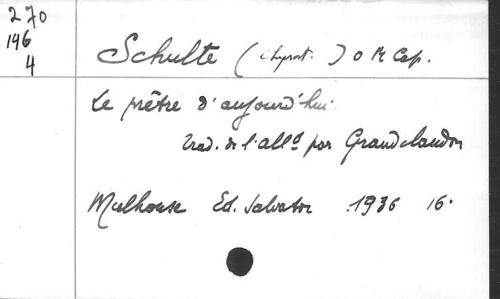 270
146
4
Schulte (Chrysost.) O M Cap.
Le prêtre d'aujourd'hui.
trad. de l'alld par Grandclaudon
Mulhouse Ed. Salvator 1936 16°